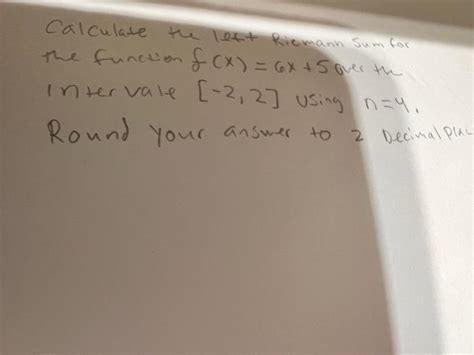 Calculate the left Riemann Sum for
the function f(x) = 6x + 5 over the
Intervale [-2, 2] using n=4.
Round your answer to 2 Decimal